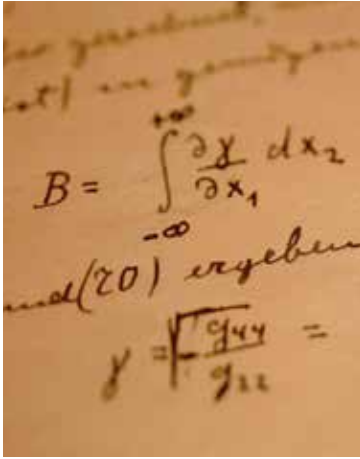 ist) in
+∞
B = ∫ ∂γ/∂x₁ dx₂
-∞
und (70) ergeben
γ = √(-g₄₄/g₂₂) =